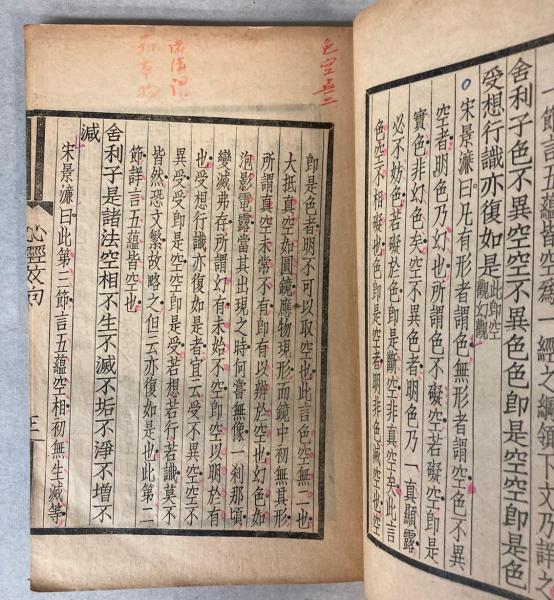 一節言五蘊皆空為一經之綱領下文乃詳之
舍利子色不異空空不異色色卽是空空卽是色
受想行識亦復如是此卽空
觀幻觀
宋景濂曰凡有形者謂色無形者謂空色不異
空者明色乃幻也所謂色不礙空若礙空卽是
實色非幻色矣空不異色者明色乃一真顯露
必不妨色若礙於色卽是斷空非真空矣此言
色空不相礙也色卽是空者明非色滅空也空
色空無二
卽是色者明不可以取空也此言色空無二也
大抵真空如圓鏡應物現形而鏡中初無其形
所謂真空未常不有卽有以辨於空也幻色如
泡影電露當其出現之時何嘗無像一刹那頃
變滅弗存所謂幻有未始不空卽空以明於有
也受想行識亦復如是者宜云受不異空空不
異受受卽是空空卽是受若想若行若識莫不
皆然恐文繁故略之但云亦復如是也此第二
節詳言五蘊皆空也
諸法謂
一切事物
舍利子是諸法空相不生不滅不垢不淨不增不
減
宋景濂曰此第三節言五蘊空相初無生滅等
心經文句
三